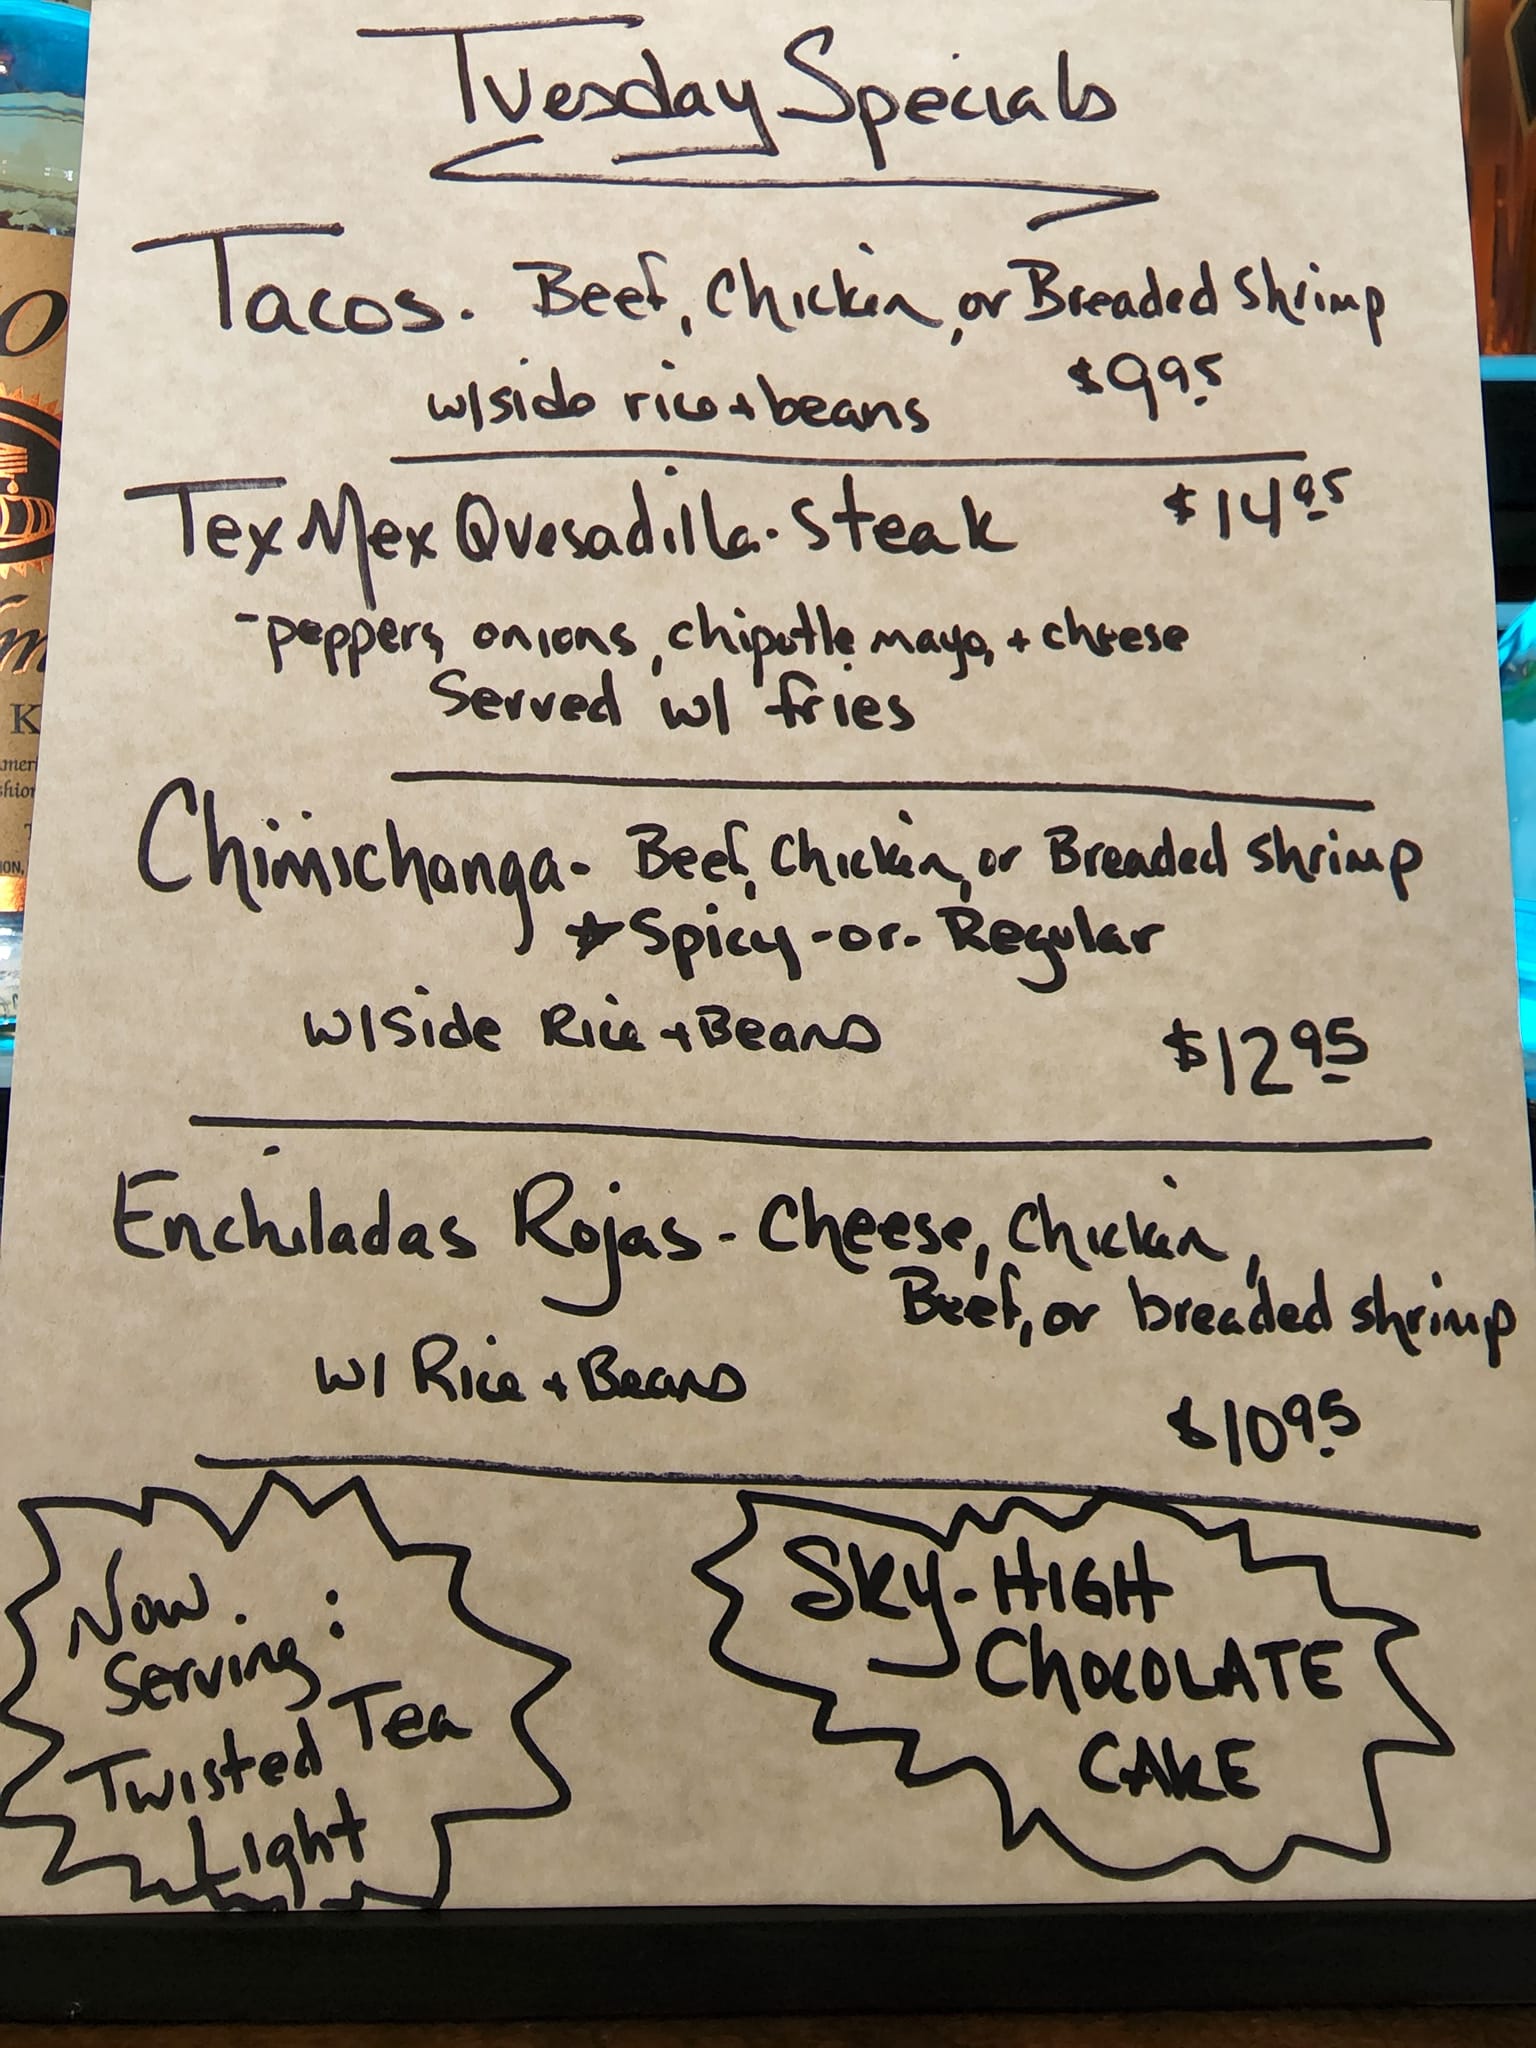 Tuesday Specials
Tacos. Beef, Chicken, or Breaded Shrimp
w/side rice + beans $9.95
Tex Mex Quesadilla. Steak $14.95
- peppers, onions, chipotle mayo, + cheese
Served w/ fries
Chimichanga- Beef, Chicken, or Breaded Shrimp
* Spicy -or- Regular
w/Side Rice + Beans $12.95
Enchiladas Rojas - Cheese, Chicken,
Beef, or breaded shrimp
w/ Rice + Beans
$10.95
Now.
Serving:
Twisted Tea
Light
SKY-HIGH
CHOCOLATE
CAKE
K